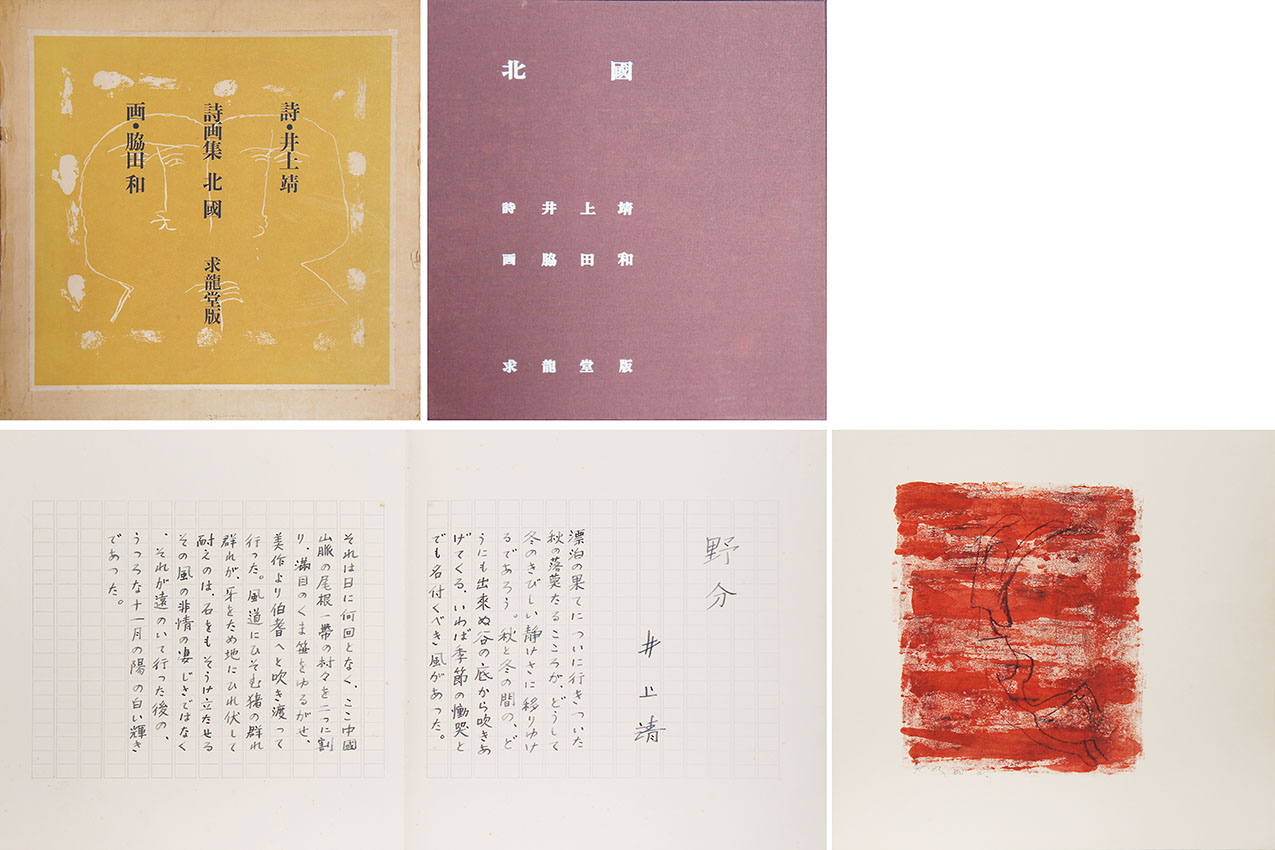 詩・井上 靖
詩画集 北 國 求龍堂版
画・脇田 和
北 國
詩 井 上 靖
画 脇 田 和
求 龍 堂 版
野分
井上靖
漂泊の果てについに行きついた
秋の落莫たるこころが、どうして
冬のきびしい静けさに移りゆけ
るであろう。秋と冬の間の、ど
うにも出来ぬ谷の底から吹きあ
げてくる、いわば季節の慟哭と
でも名付くべき風があった。
それは日に何回となく、ここ中國
山脈の尾根一帶の村々を二つに割
り、満目のくま笹をゆるがせ、
美作より伯耆へと吹き渡って
行った。風道にひそむ猪の群れ
群れが、牙をため地にひれ伏して
耐えのは、石をもそうけ立たせる
その風の非情の凄じさではなく
、それが遠のいて行った後の、
うつろな十一月の陽の白い輝き
であった。